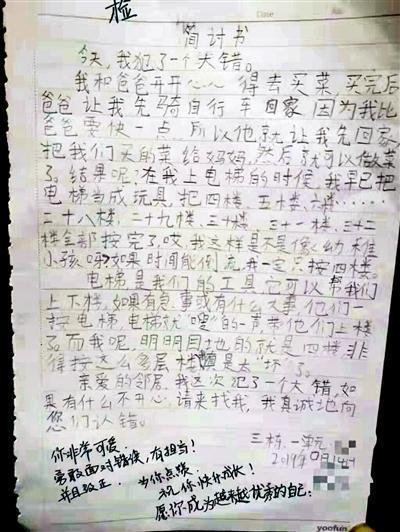 检
Case
简讨书
今天,我犯了一个大错。
我和爸爸开开心心得去买菜,买完后
爸爸让我先骑自行车回家,因为我比
爸爸要快一点,所以他就让我先回家,
把我们买的菜给妈妈,然后就可以做菜
了。结果呢?在我上电梯的时候,我早已把
电梯当成玩具,把四楼、五楼、六楼……
二十八楼、二十九楼、三十楼、三十一楼、三十二
楼全部按完了,哎,我这样是不是像幼稚
小孩呀?如果时间能倒流,我一定只按四楼。
电梯是我们的工具,它可以帮我们
上下楼,如果有急事或有什么大事,他们一
按电梯,电梯就“噔”的一声带他们上楼
了。而我呢,明明目的的就是四楼,非
得按这么多层楼,真是太“坏”了。
亲爱的邻居,我这次犯了一个大错,如
果有什么不开心,请来找我,我真诚地向
您们认错。
三栋一单元
2019年 月14日
你非常可爱
勇敢面对错误,有担当!
并且改正。为你点赞
祝你快快成长!
愿你成为越来越优秀的自己!
yoofun